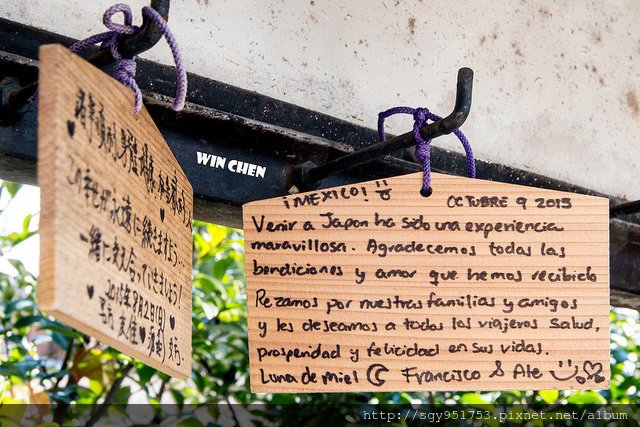 WIN CHEN
¡MEXICO!
OCTUBRE 9 2015
Venir a Japon ha sido una experiencia
maravillosa. Agradecemos todas las
bendiciones y amor que hemos recibido
Rezamos por nuestras familias y amigos
y les deseamos a todos los viajeros salud,
prosperidad y felicidad en sus vidas.
Luna de miel Francisco & Ale
一緒に支え合っていきましょう!
2015年8月2日(日)
http://sgy951753.pixnet.net/album